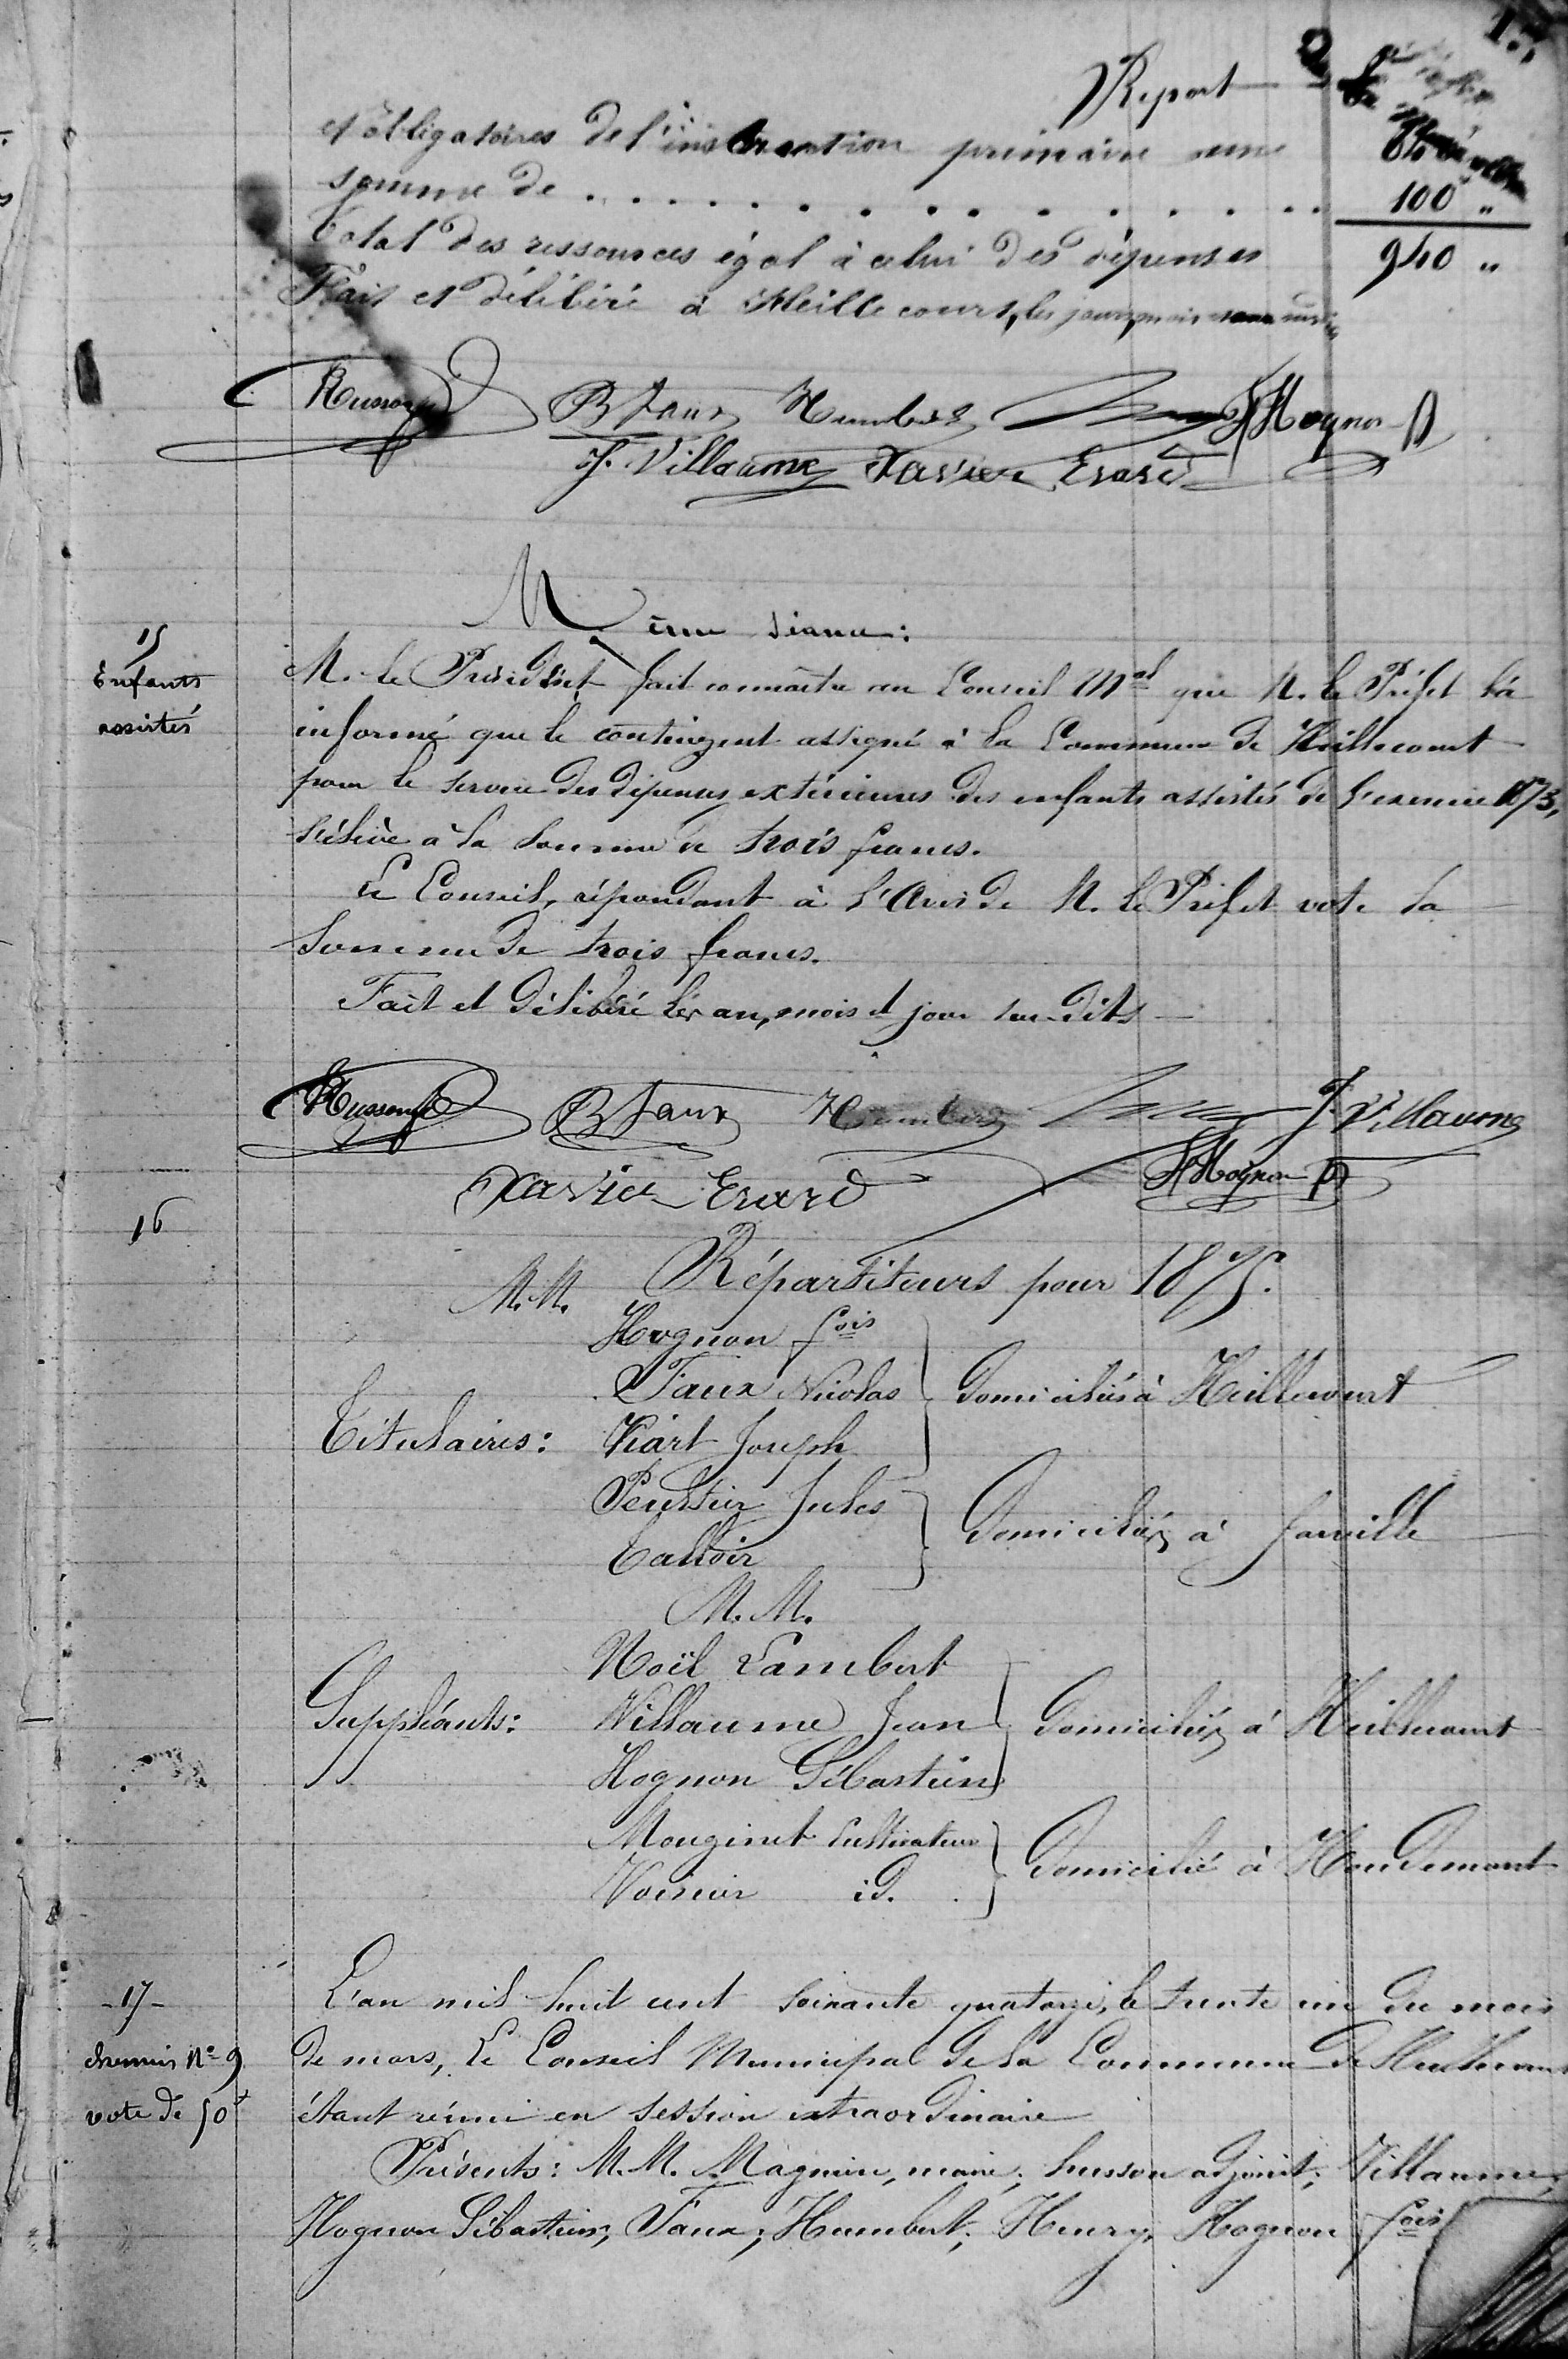 Report
et obligatoires de l'instruction primaire une
somme de . . . . . . . . . . . . . . 100 "
Total des ressources égal à celui des dépenses 940 "
Fait et délibéré à Heillecourt, les jour, mois
Husson B Faux Humbert Hognon
J. Villaume Xavier Erard
Même séance:
15
Enfants
assistés
M. le Président fait connaître au Conseil Mal que M. le Préfet l'a
informé que le contingent assigné à la Commune de Heillecourt
pour le service des dépenses extérieures des enfants assistés de l'exercice 1873,
s'élève à la somme de trois francs.
Le Conseil, répondant à l'avis de M. le Préfet vote la
somme de trois francs.
Fait et délibéré les an, mois et jour susdits
Husson B Faux Humbert J. Villaume
Xavier Erard Hognon
16
Répartiteurs pour 1875.
M.M.
Hognon fois
Faux Nicolas domiciliés à Heillecourt
Titulaires: Viart Joseph
Jules
domiciliés à Jarville
M.M.
Noël Lambert
Suppléants: Villaume Jean domiciliés à Heillecourt
Hognon Sébastien
Mouginet cultivateur
Voirin id. domicilié à Houdemont
-17-
chemin No 9
vote de 50f
L'an mil huit cent soixante quatorze, le trente un du mois
de mars, Le Conseil Municipal de la Commune de Heillecourt
étant réuni en session extraordinaire
Présents: M.M. Magnien, maire; husson adjoint; Villaume;
Hognon Sébastien; Faux; Humbert; Henry; Hognon fois